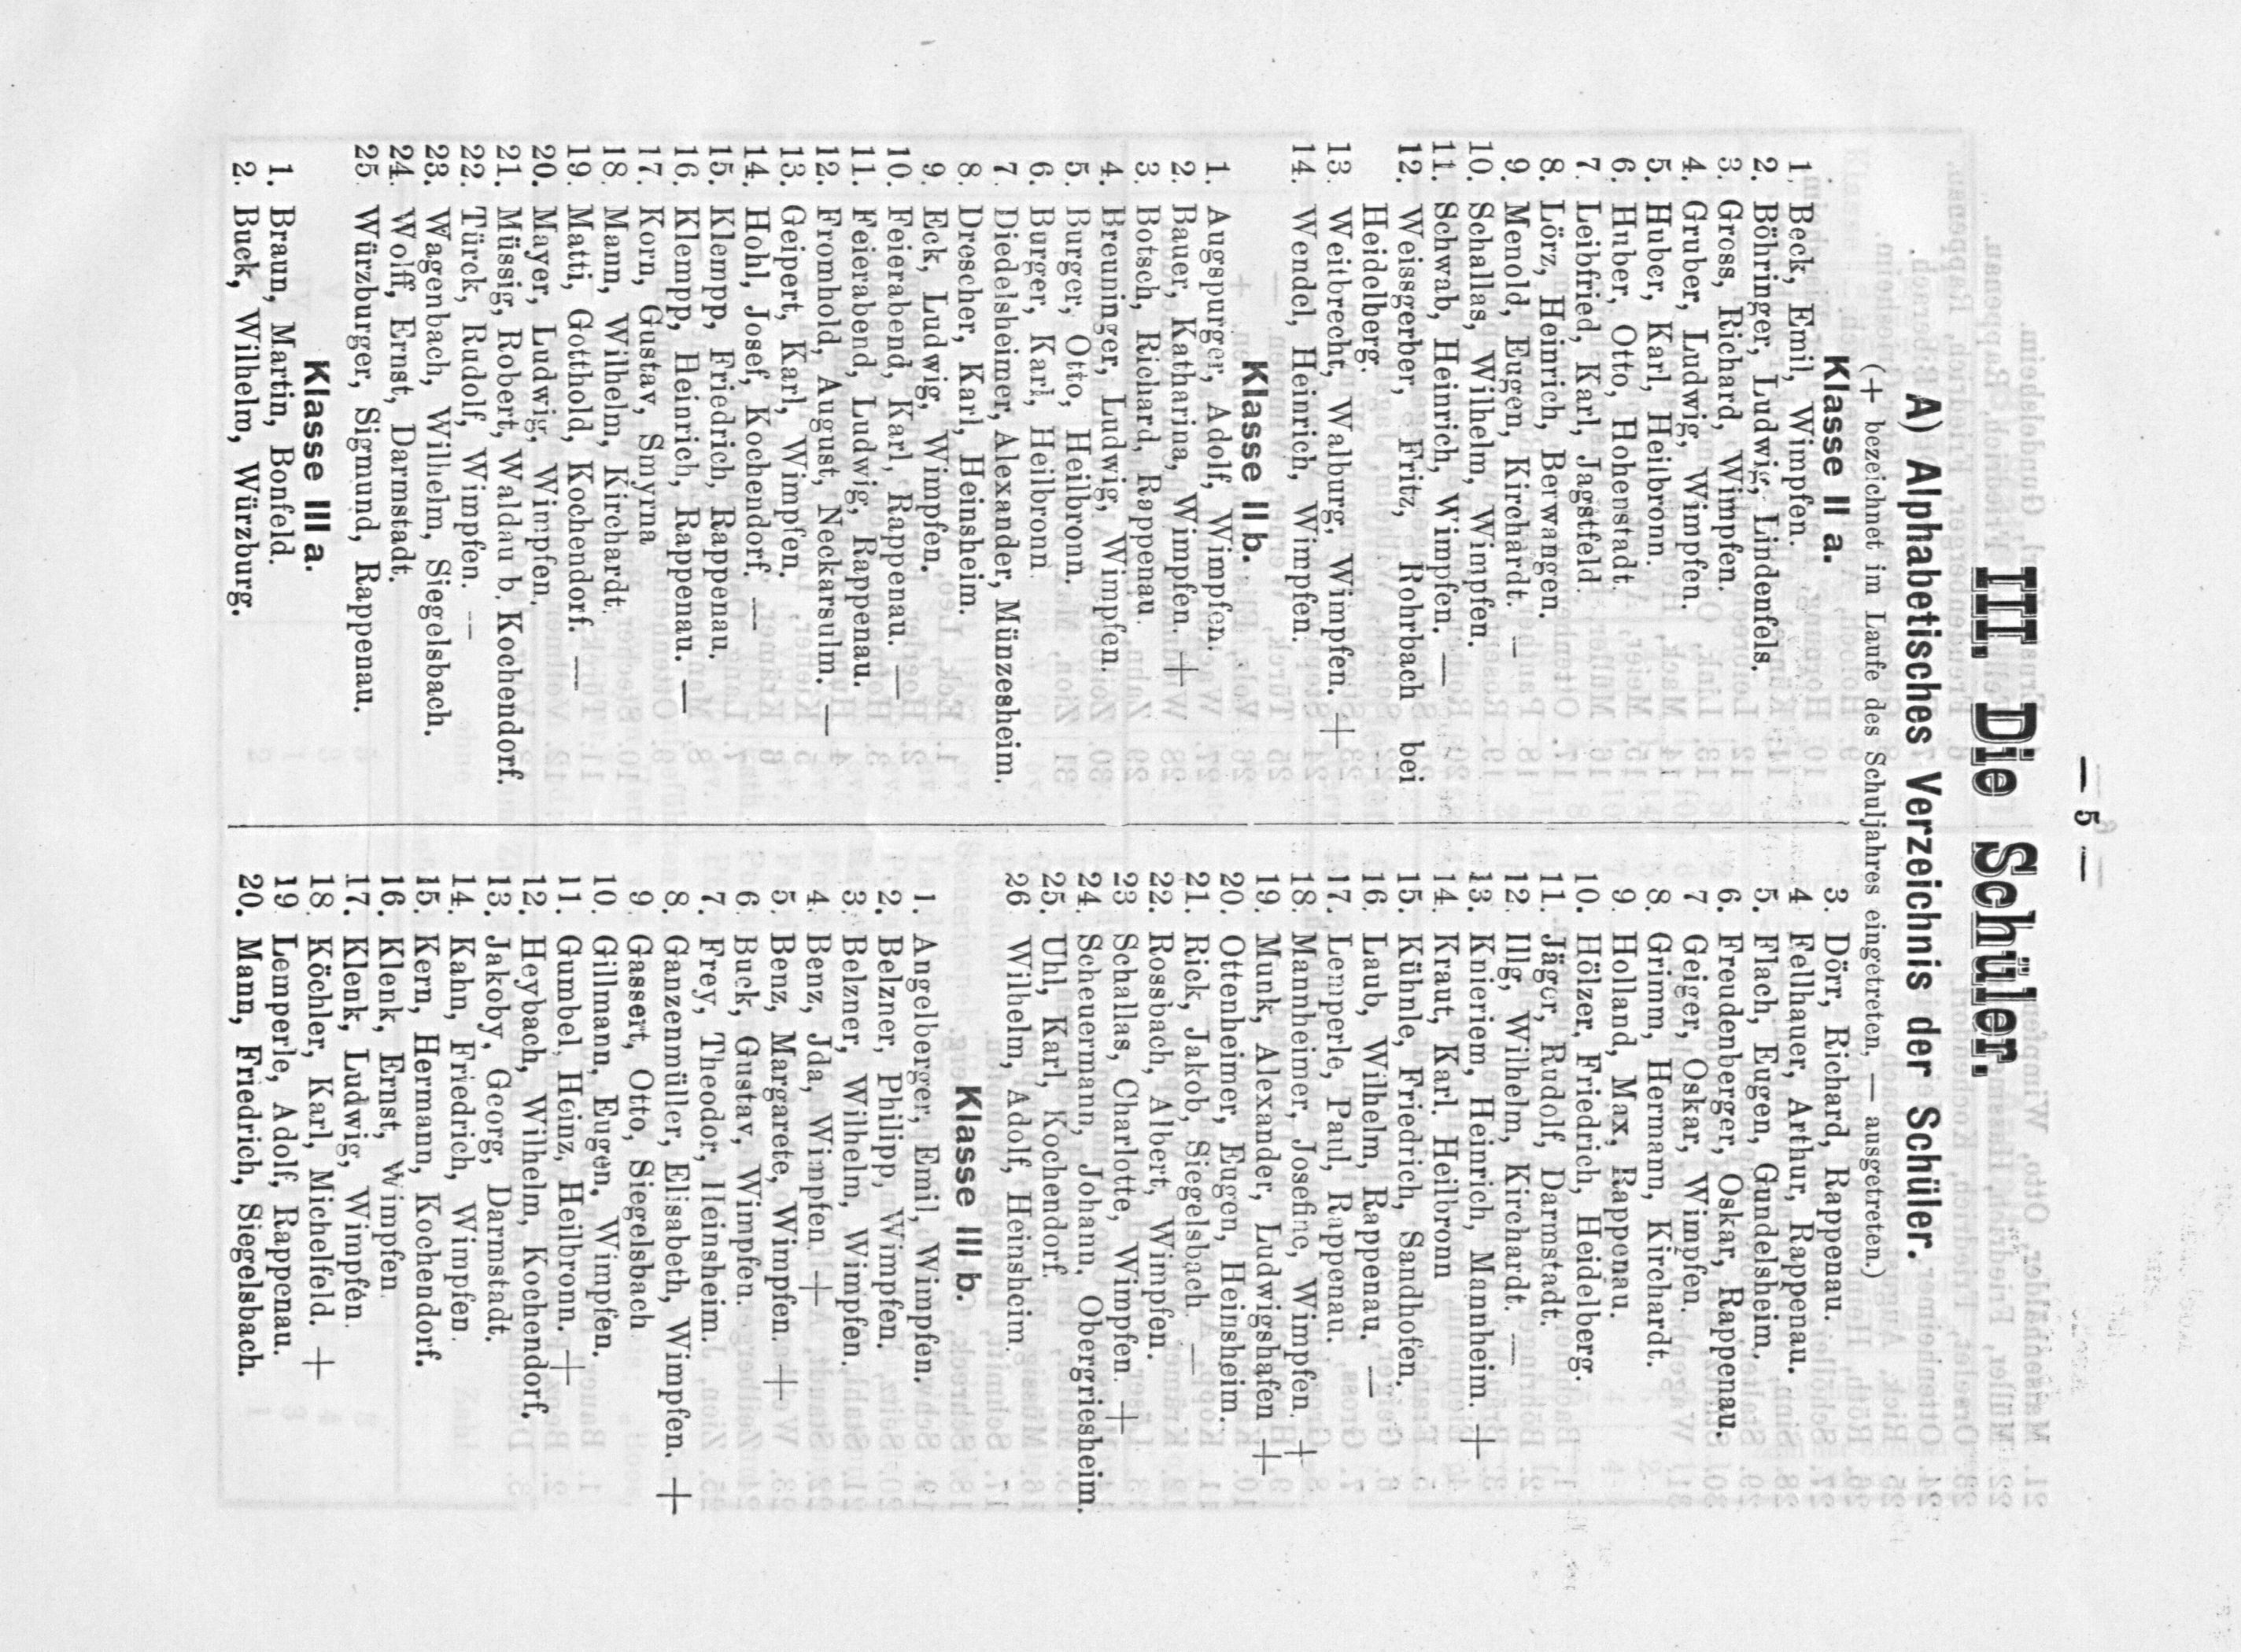 — 5 —
III. Die Schüler.
A) Alphabetisches Verzeichnis der Schüler.
(+ bezeichnet im Laufe des Schuljahres eingetreten, — ausgetreten.)
Klasse II a.
1. Beck, Emil, Wimpfen.
2. Böhringer, Ludwig, Lindenfels.
3. Gross, Richard, Wimpfen.
4. Gruber, Ludwig, Wimpfen.
5. Huber, Karl, Heilbronn.
6. Huber, Otto, Hohenstadt.
7. Leibfried, Karl, Jagstfeld.
8. Lörz, Heinrich, Berwangen.
9. Menold, Eugen, Kirchardt. —
10. Schallas, Wilhelm, Wimpfen.
11. Schwab, Heinrich, Wimpfen. —
12. Weissgerber, Fritz, Rohrbach bei
Heidelberg.
13. Weitbrecht, Walburg, Wimpfen. +
14. Wendel, Heinrich, Wimpfen.
Klasse II b.
1. Augspurger, Adolf, Wimpfen.
2. Bauer, Katharina, Wimpfen. +
3. Botsch, Richard, Rappenau.
4. Breuninger, Ludwig, Wimpfen.
5. Burger, Otto, Heilbronn.
6. Burger, Karl, Heilbronn.
7. Diedelsheimer, Alexander, Münzesheim.
8. Drescher, Karl, Heinsheim.
9. Eck, Ludwig, Wimpfen.
10. Feierabend, Karl, Rappenau. —
11. Feierabend, Ludwig, Rappenau.
12. Fromhold, August, Neckarsulm. —
13. Geipert, Karl, Wimpfen.
14. Hohl, Josef, Kochendorf. —
15. Klempp, Friedrich, Rappenau.
16. Klempp, Heinrich, Rappenau. —
17. Korn, Gustav, Smyrna
18. Mann, Wilhelm, Kirchardt.
19. Matti, Gotthold, Kochendorf. —
20. Mayer, Ludwig, Wimpfen.
21. Müssig, Robert, Waldau b. Kochendorf.
22. Türck, Rudolf, Wimpfen. —
23. Wagenbach, Wilhelm, Siegelsbach.
24. Wolff, Ernst, Darmstadt.
25. Würzburger, Sigmund, Rappenau.
Klasse III a.
1. Braun, Martin, Bonfeld.
2. Buck, Wilhelm, Würzburg.
3. Dörr, Richard, Rappenau.
4 Fellhauer, Arthur, Rappenau.
5. Flach, Eugen, Gundelsheim.
6. Freudenberger, Oskar, Rappenau.
7 Geiger, Oskar, Wimpfen.
8. Grimm, Hermann, Kirchardt.
9. Holland, Max, Rappenau.
10. Hölzer, Friedrich, Heidelberg.
11. Jäger, Rudolf, Darmstadt.
12. Illg, Wilhelm, Kirchardt. —
13. Knieriem, Heinrich, Mannheim. +
14. Kraut, Karl. Heilbronn
15. Kühnle, Friedrich, Sandhofen.
16. Laub, Wilhelm, Rappenau. —
17. Lemperle, Paul, Rappenau.
18. Mannheimer, Josefine, Wimpfen. +
19. Munk, Alexander, Ludwigshafen +
20. Ottenheimer, Eugen, Heinsheim.
21. Rick, Jakob, Siegelsbach. —
22. Rossbach, Albert, Wimpfen.
23 Schallas, Charlotte, Wimpfen. +
24. Scheuermann, Johann, Obergriesheim.
25. Uhl, Karl, Kochendorf.
26 Wilhelm, Adolf, Heinsheim.
Klasse III b.
1. Angelberger, Emil, Wimpfen.
2. Belzner, Philipp, Wimpfen.
3. Belzner, Wilhelm, Wimpfen.
4. Benz, Jda, Wimpfen. +
5. Benz, Margarete, Wimpfen. +
6. Buck, Gustav, Wimpfen.
7. Frey, Theodor, Heinsheim.
8. Ganzenmüller, Elisabeth, Wimpfen. +
9. Gassert, Otto, Siegelsbach
10. Gillmann, Eugen, Wimpfen.
11. Gumbel, Heinz, Heilbronn. +
12. Heybach, Wilhelm, Kochendorf.
13. Jakoby, Georg, Darmstadt.
14. Kahn, Friedrich, Wimpfen.
15. Kern, Hermann, Kochendorf.
16. Klenk, Ernst, Wimpfen.
17. Klenk, Ludwig, Wimpfen.
18. Köchler, Karl, Michelfeld. +
19 Lemperle, Adolf, Rappenau.
20. Mann, Friedrich, Siegelsbach.